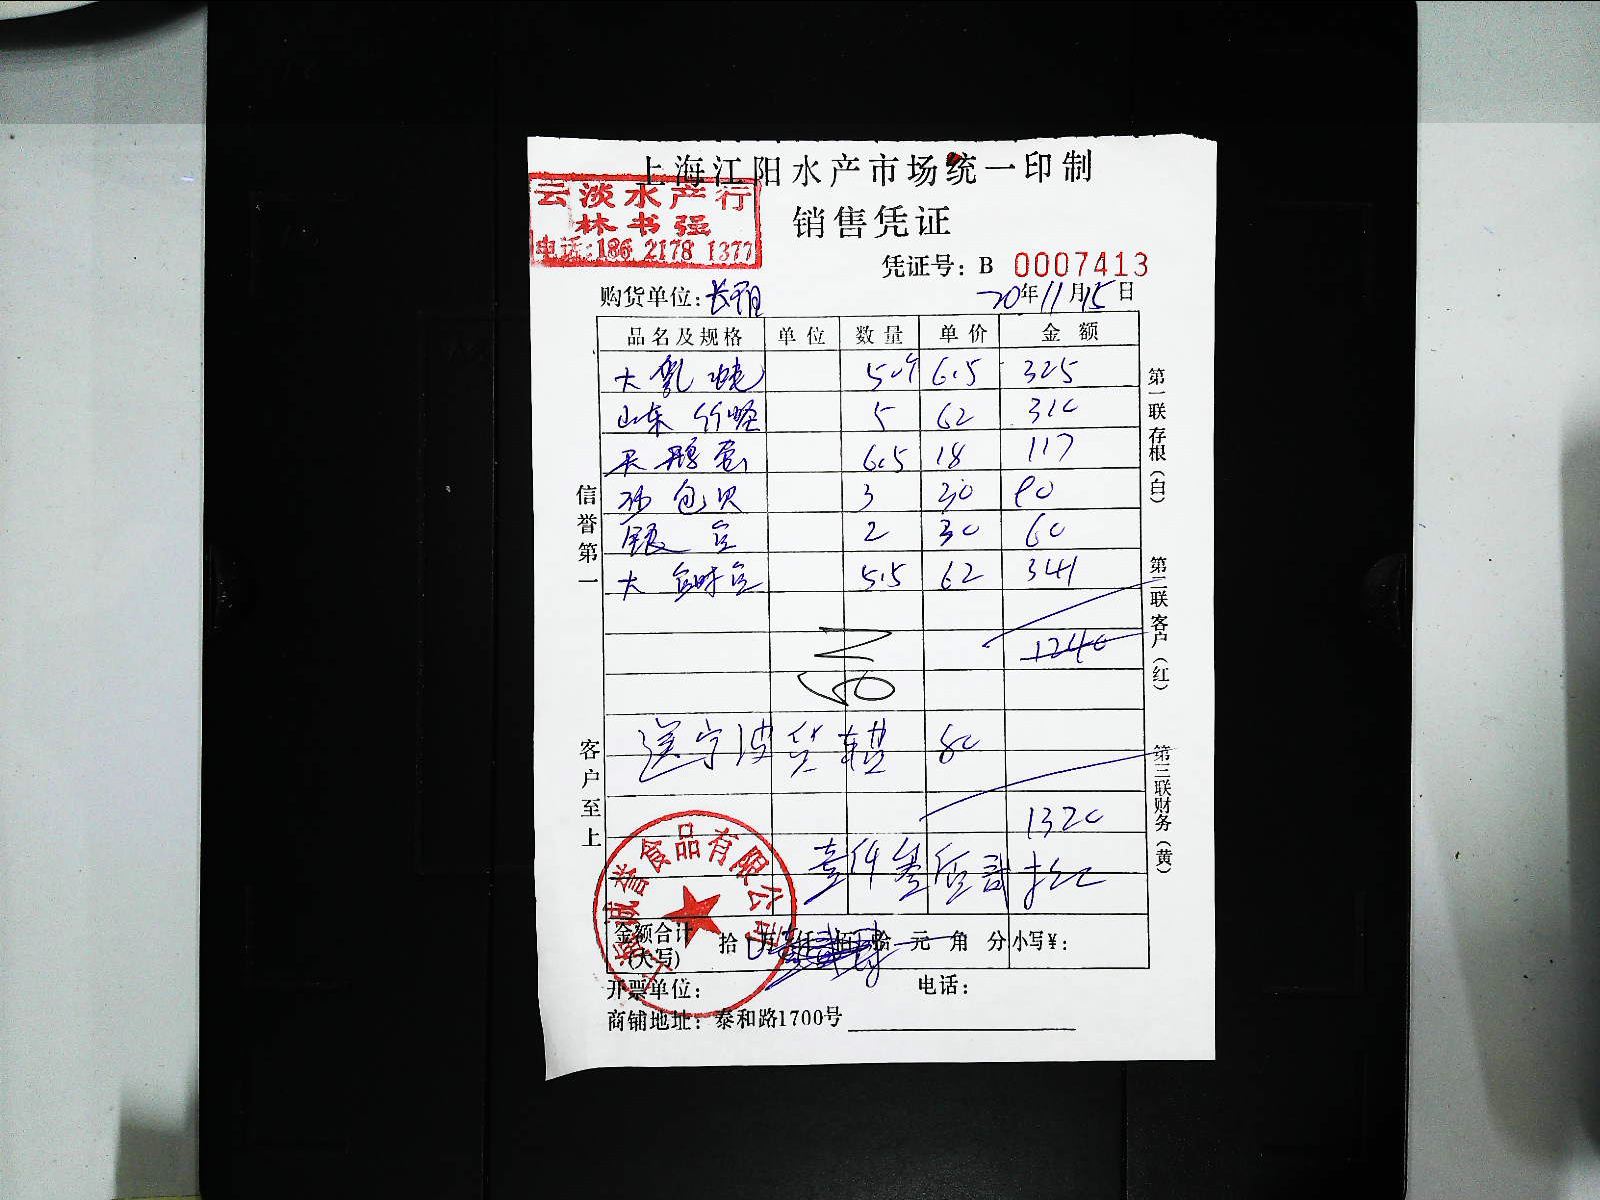 上海江阳水产市场统一印制
云淡水产行
林书强
电话:186 2178 1377
销售凭证
凭证号: B 0007413
购货单位:
20年11月15日
品名及规格 单位 数量 单价 金额
大 50个 6.5 325
山东 5 62 310
天鹅蛋 6.5 18 117
沙包贝 3 30 90
2 30 60
大 5.5 62 341
1240
送宁波货车费 80
1320
金额合计(大写) 拾 万 仟 佰 拾 元 角 分 小写¥:
开票单位: 电话:
商铺地址: 泰和路1700号
信誉第一
客户至上
第一联存根(白)
第二联客户(红)
第三联财务(黄)
诚誉食品有限公司